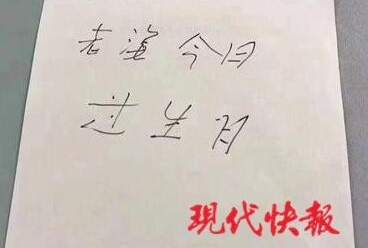 老海今日
过生日
现代快報